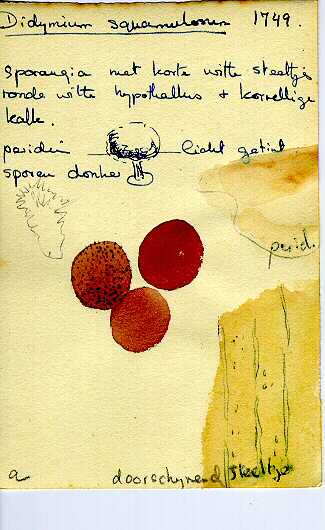 Didymium squamulosum 1749.
sporangia met korte witte steeltjes
ronde witte hypothallus + korrelige
kalk.
peridium licht getint
sporen donker
perid.
a doorschynend steeltje